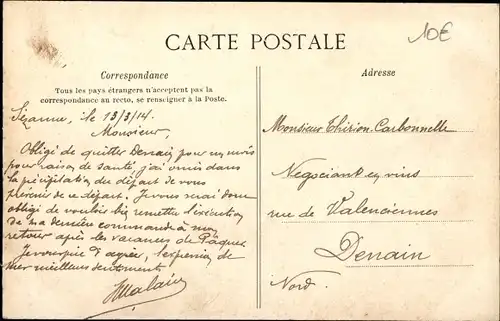 10€
CARTE POSTALE
Correspondance
Adresse
Tous les pays étrangers n'acceptent pas la
correspondance au recto, se renseigner à la Poste.
Sézanne, le 13/3/14.
Monsieur,
Obligé de quitter Denain pour un mois
pour raison de santé, j'ai omis dans
la précipitation du départ de vous
prévenir de ce départ. Je vous serai donc
obligé de vouloir bien remettre l'exécution
de la dernière commande à mon
retour après les vacances de Pâques.
Je vous prie d'agréer, l'expression de
mes meilleurs sentiments
Monsieur Thirion-Carbonnelle
Négociant en vins
rue de Valenciennes
Denain
Nord.